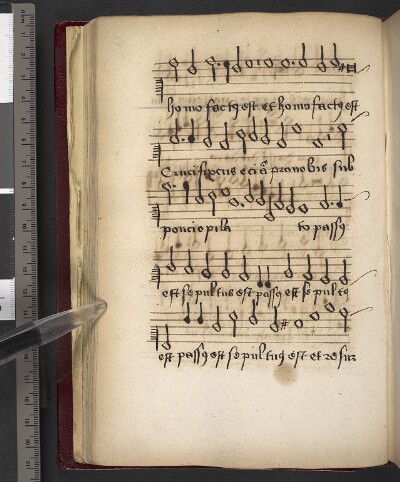 homo factꝯ est et homo factꝯ est
Crucifixus eciā pro nobis sub
poncio pila to passꝯ
est sepultus est passꝯ est sepulto
est passꝯ est sepultꝯ est et resur